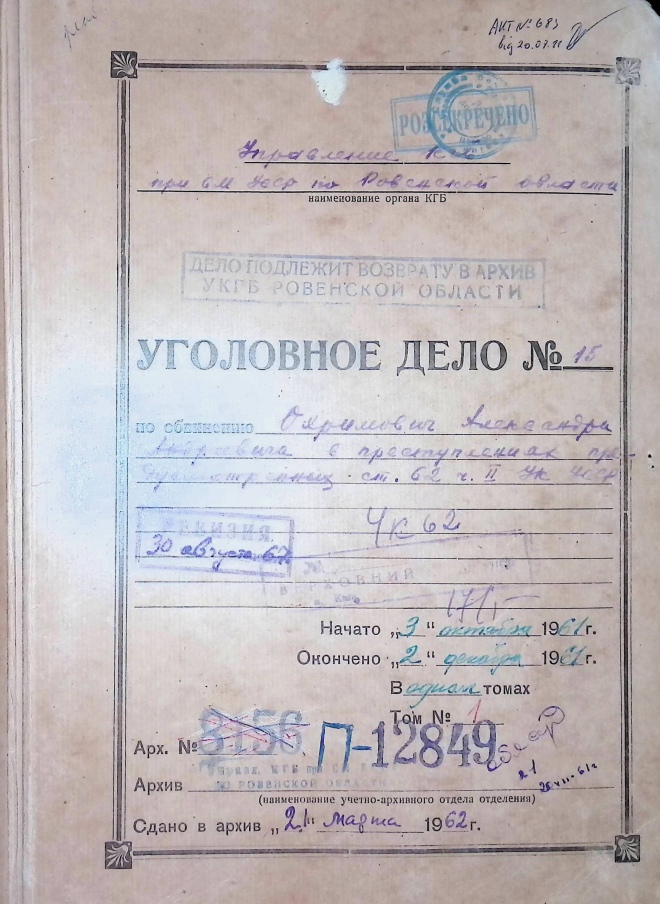 АКТ № 683
від 20.07.
РОЗСЕКРЕЧЕНО
Управление КГБ
при СМ УССР по Ровенской области
наименование органа КГБ
ДЕЛО ПОДЛЕЖИТ ВОЗВРАТУ В АРХИВ
УКГБ РОВЕНСКОЙ ОБЛАСТИ
УГОЛОВНОЕ ДЕЛО № 15
по обвинению Охримович Александра
Андреевича в преступлениях пре-
дусмотренных ст. 62 ч. II УК УССР
РЕВИЗИЯ
30 августа 67
ЧК 62
ВЕРХОВНИЙ
Начато „3" октября 1961 г.
Окончено „2" декабря 1961 г.
В одном томах
Том № 1
Арх. № 8156 П-12849
Архив
ПО РОВЕНСКОЙ ОБЛАСТИ
(наименование учетно-архивного отдела отделения)
Сдано в архив „21" марта 1962 г.